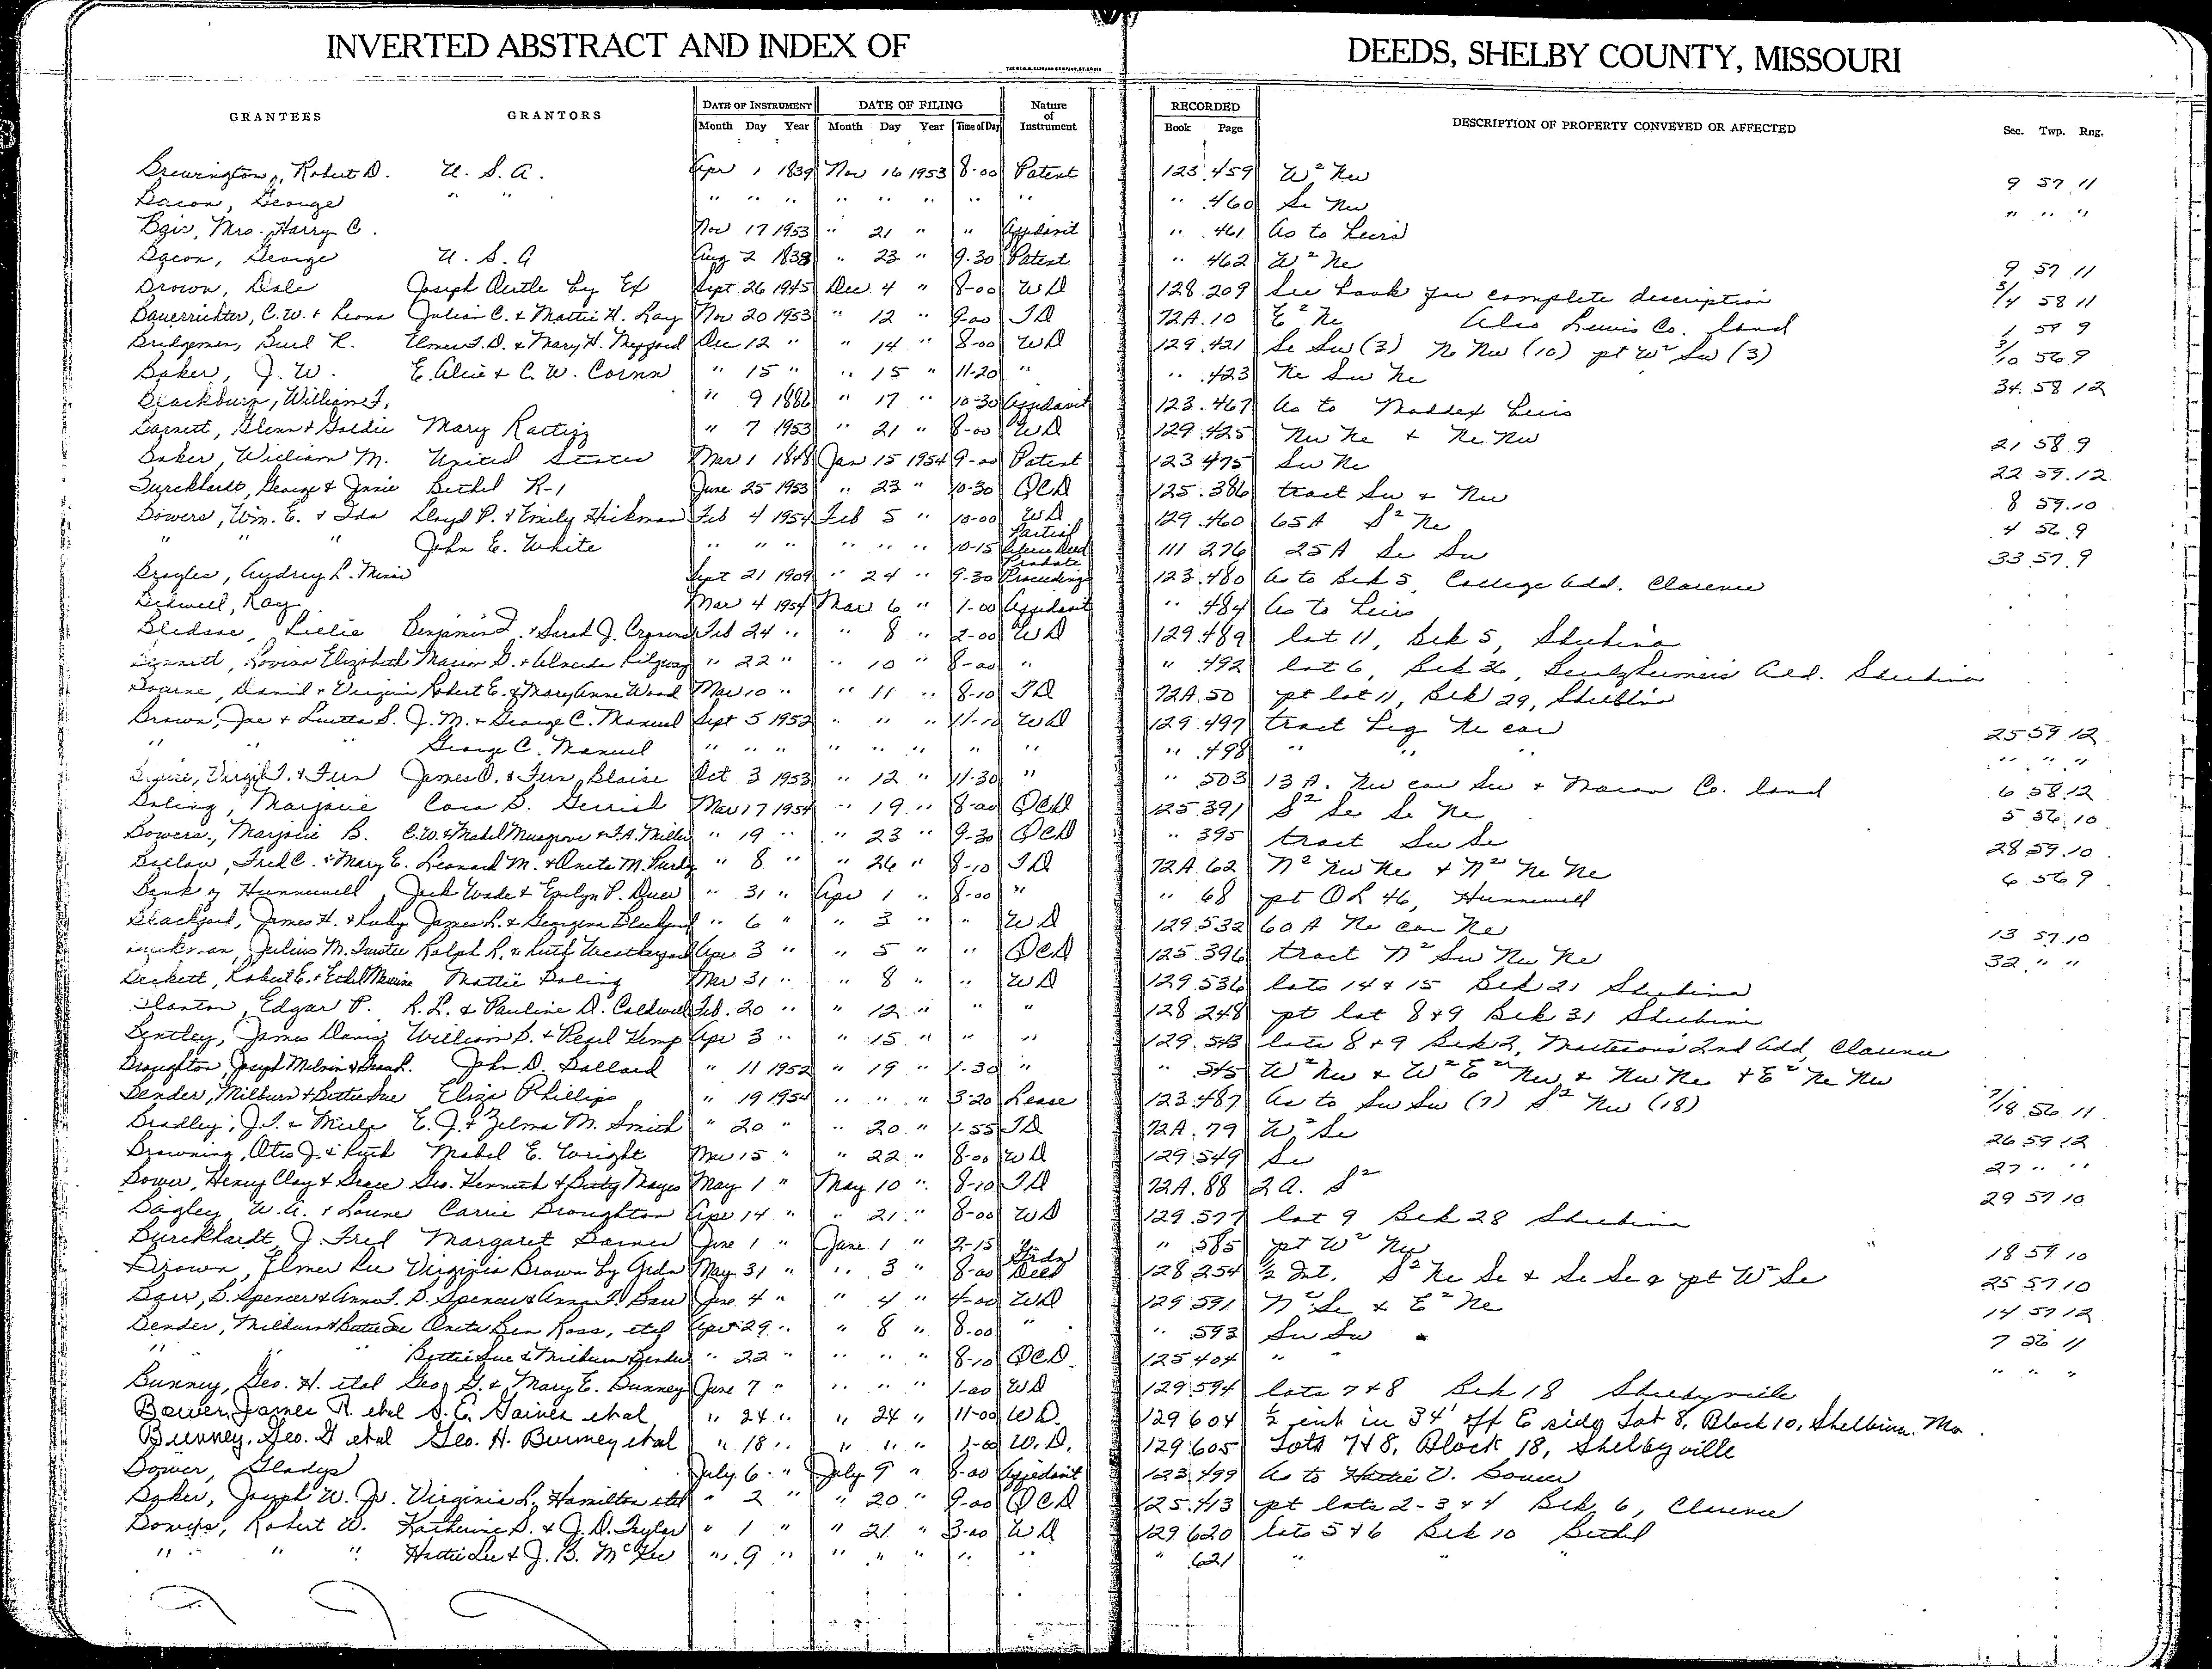 INVERTED ABSTRACT AND INDEX OF DEEDS, SHELBY COUNTY, MISSOURI
GRANTEES GRANTORS DATE OF INSTRUMENT DATE OF FILING Nature of Instrument RECORDED DESCRIPTION OF PROPERTY CONVEYED OR AFFECTED Sec. Twp. Rng.
Month Day Year Month Day Year Time of Day Book Page
Brewington, Robert D. U. S. A. Apr 1 1839 Nov 16 1953 8-00 Patent 123 459 W² Nw 9 57 11
Bacon, George " " " " " " " " " " " 460 Se Nw " " "
Mrs. Harry C. Nov 17 1953 " 21 " " Affidavit " 461 As to heirs
Bacon, George U. S. A Aug 2 1838 " 23 " 9-30 Patent " 462 W² Ne 9 57 11
Brown, Dale Joseph by Ex Sept 26 1945 Dec 4 " 8-00 WD 128 209 See book for complete description 3/4 58 11
Bauerrichter, C. W. & Leona Julian C. & Mattie H. Ray Nov 20 1953 " 12 " 9-00 TD 72A 10 E² Ne Also Lewis Co. land 1 59 9
Bridgeman, Burl R. Elmer T. D. & Mary H. Dec 12 " " 14 " 8-00 WD 129 421 Se Sw (3) Ne Nw (10) pt W² Sw (3) 3/10 56 9
Baker, J. W. E. Alice & C. W. Corns " 15 " " 15 " 11-20 " " 423 Ne Sw Ne 34 58 12
Blackburn, William F. " 9 1886 " 17 " 10-30 Affidavit 123 467 As to Maddex heirs
Barnett, Glenn & Goldie Mary Rattig " 7 1953 " 21 " 8-00 WD 129 425 Nw Ne & Ne Nw 21 58 9
Baker, William M. United States Mar 1 1848 Jan 15 1954 9-00 Patent 123 475 Sw Ne 22 59 12
Burckhardt, George & Annie Bethel R-1 June 25 1953 " 23 " 10-30 QCD 125 386 tract Sw & Nw 8 59 10
Bowers, Wm. E. & Ida Lloyd P. & Emily Hickman Feb 4 1954 Feb 5 " 10-00 WD 129 460 65A S² Ne 4 56 9
" " " John E. White " " " " " " 10-15 Partial Deed 111 276 25A Se Sw 33 57 9
Broyles, Audrey L. Sept 21 1909 " 24 " 9-30 Probate Proceedings 123 480 As to Blk 5, College Add. Clarence
Bidwell, Ray Mar 4 1954 Mar 6 " 1-00 Affidavit " 484 As to heirs
Bledsoe, Lillie Benjamin F. & Sarah J. Feb 24 " " 8 " 2-00 WD 129 489 lot 11, Blk 5, Shelbina
Lovina Elizabeth Marion G. & Almeda Ridgway " 22 " " 10 " 8-00 " " 492 lot 6, Blk 26, Add. Shelbina
Bourne, David & Virginia Robert E. & Mary Anne Wood Mar 10 " " 11 " 8-10 TD 72A 50 pt lot 11, Blk 29, Shelbina
Brown, Joe & Luetta S. J. M. & George C. Manuel Sept 5 1952 " " " 11-10 WD 129 497 tract beg Ne cor 25 59 12
" " " George C. Manuel " " " " " " " " " 498 " " " " " "
Virgil T. & Fern James O. & Fern Blaise Oct 3 1953 " 12 " 11-30 " " 503 13 A. Nw cor Sw & Macon Co. land 6 58 12
Boling, Marjorie Cora B. Gerrish Mar 17 1954 " 19 " 8-00 QCD 125 391 S² Se Se Ne 5 56 10
Bowers, Marjorie B. C. W. & Mabel Musgrove & F. A. Miller " 19 " " 23 " 9-30 QCD " 395 tract Sw Se 28 59 10
Ballow, Fred C. & Mary E. Leonard M. & Aneta M. Purdy " 8 " " 26 " 8-10 TD 72A 62 N² Nw Ne & N² Ne Ne 6 56 9
Bank of Hunnewell Jack Wade & Evelyn P. " 31 " Apr 1 " 8-00 " " 68 pt OL 46, Hunnewell
Blackford, James H. & Ruby James R. & Georgena Blackford " 6 " " 3 " " WD 129 532 60 A Ne cor Ne 13 57 10
Julius M. Trustee Ralph R. & Ruth Weatherford Apr 3 " " 5 " " QCD 125 396 tract N² Sw Nw Ne 32 " "
Beckett, Robert E. & Ethel Maxine Mattie Boling Mar 31 " " 8 " " WD 129 536 lots 14 & 15 Blk 21 Shelbina
Blanton, Edgar P. R. L. & Pauline D. Caldwell Feb. 20 " " 12 " " " 128 248 pt lot 8 & 9 Blk 31 Shelbina
Bentley, James William B. & Pearl Kemp Apr 3 " " 15 " " " 129 543 lots 8 & 9 Blk 2, 2nd Add, Clarence
Broughton, Joseph Melvin & John D. Ballard " 11 1952 " 19 " 1-30 " " 545 W² Nw & W² E² Nw & Nw Ne & E² Ne Nw
Bender, Milburn & Bettie Sue Eliza Phillips " 19 1954 " " " 3-20 Lease 123 487 As to Sw Sw (7) S² Nw (18) 7/18 56 11
Bradley, J. T. & Merle E. J. & Zelma M. Smith " 20 " " 20 " 1-55 TD 72A 79 W² Se 26 59 12
Browning, Otis J. & Ruth Mabel E. Wright Mar 15 " " 22 " 8-00 WD 129 549 Se 27 " "
Bower, Henry Clay & Grace Geo. Kenneth & Betty Mayes May 1 " May 10 " 8-10 TD 72A 88 2 A. S² 29 57 10
Bagley W. A. & Lorene Carrie Broughton Apr 14 " " 21 " 8-00 WD 129 577 lot 9 Blk 28 Shelbina
Burckhardt, J. Fred Margaret Barnes June 1 " June 1 " 2-15 " " 585 pt W² Nw 18 59 10
Brown, Elmer Lee Virginia Brown by Grdn May 31 " " 3 " 8-00 Grdn Deed 128 254 ½ Int. S² Ne Se & Se Se & pt W² Se 25 57 10
Barr, B. Spencer & Anna F. B. Spencer & Anna F. Barr June 4 " " 4 " 4-00 WD 129 591 N² Se & E² Ne 14 57 12
Bender, Milburn & Bettie Sue Aneta Bea Ross, etal Apr 29 " " 8 " 8-00 " " 593 Sw Sw 7 56 11
" " " Bettie Sue & Milburn Bender " 22 " " " " 8-10 QCD 125 404 " " " " "
Bunney, Geo. H. etal Geo. G. & Mary E. Bunney June 7 " " " " 1-00 WD 129 594 lots 7 & 8 Blk 18 Shelbyville
Bower, James R. etal S. E. Gaines etal " 24 " " 24 " 11-00 WD. 129 604 ½ int in 34' off E side Lot 8, Block 10, Shelbina. Mo
Bunney, Geo. G etal Geo. H. Bunney etal " 18 " " " " 1-00 W.D. 129 605 Lots 7 & 8, Block 18, Shelbyville
Bower, Gladys July 6 " July 9 " 8-00 Affidavit 123 499 As to Hattie V. Bower
Baker, Joseph W. Jr. Virginia L. Hamilton etal " 2 " " 20 " 9-00 QCD 125 413 pt lots 2-3 & 4 Blk 6, Clarence
Robert W. Katherine S. & J. D. Taylor " 1 " " 21 " 3-00 WD 129 620 lots 5 & 6 Blk 10 Bethel
" " " Hattie Lee & J. B. McKee " 9 " " " " " " " 621 " " "